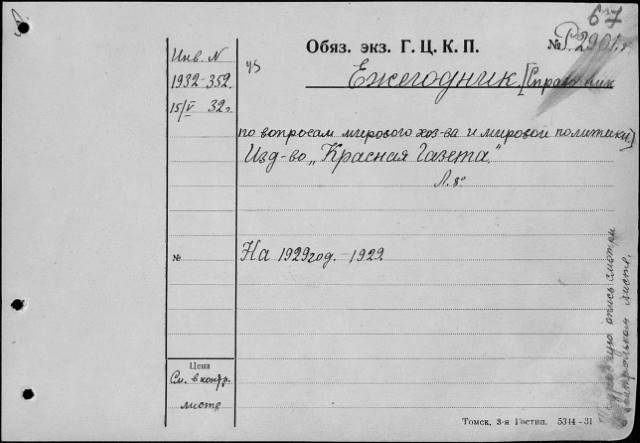 67
Обяз. экз. Г. Ц. К. П.
№ Р.2901
Инв. N
1932-352
15/V 32г
Ежегодник [Справочник
по вопросам мирового хоз-ва и мировой политики]
Изд-во „Красная Газета"
Л. 8°
№
На 1929 год. - 1929
Цена
См. в контр.
листе
опись смотри
в контрольном листе.
Томск, 3-я Гостип. 5344-31